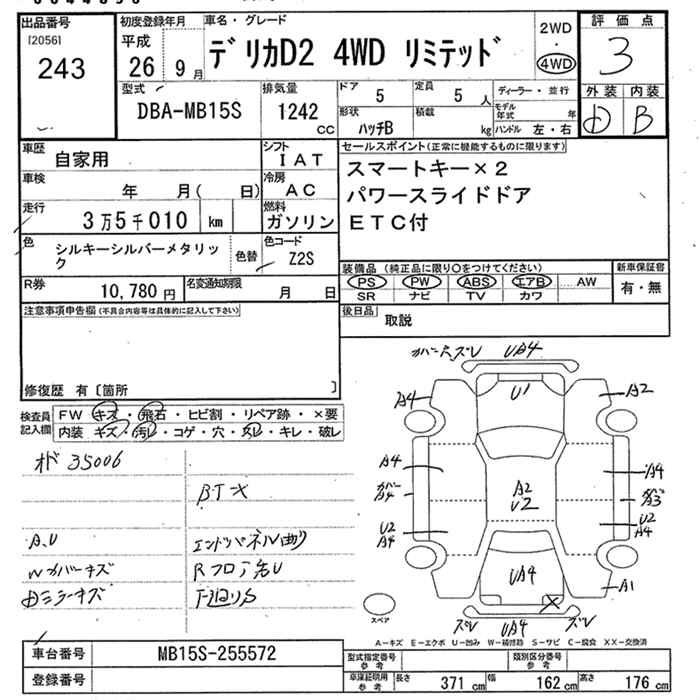 出品番号
[2056]
243
初度登録年月
平成
26 9月
車名・グレード
デリカD2 4WD リミテッド
2WD
・
4WD
評価点
3
外装 内装
D B
型式
DBA-MB15S
排気量
1242
cc
ドア
5
定員
5 人
形状
ハッチB
積載
kg
ディーラー・並行
モデル年式 年
ハンドル 左・右
車歴
自家用
シフト
IAT
車検
年 月( 日)
冷房
AC
走行
3万5千010 km
燃料
ガソリン
色
シルキーシルバーメタリック
色替
色コード
Z2S
R券
10,780 円
名変通知期限
月 日
セールスポイント(正常に機能するものに限ります)
スマートキー×2
パワースライドドア
ETC付
装備品(純正品に限り○をつけてください)
PS PW ABS エアB AW
SR ナビ TV カワ
新車保証書
有・無
後日品
取説
注意事項申告欄(不具合内容等は具体的に記入して下さい)
修復歴 有〔箇所 〕
検査員記入欄
FW キズ・飛石・ヒビ割・リペア跡・×要
内装 キズ・汚レ・コゲ・穴・スレ・キレ・破レ
オド 35006
BT-X
A.U
エンドパネル曲り
Wカバーキズ
Dミラーキズ
下廻りS
カバー穴ズレ UA4
A4 U1 A2
A4 A4
カバーA4 A2 U2 カバーA3
U2 A4 U2 A4
UA4 A1
X
ズレ UA4 ズレ
スペア
A-キズ E-エクボ U-凹み W-補修跡 S-サビ C-腐食 XX-交換済
車台番号
MB15S-255572
登録番号
型式指定番号
参考
類別区分番号
参考
車庫証明用
参考
長さ 371 cm 幅 162 cm 高さ 176 cm